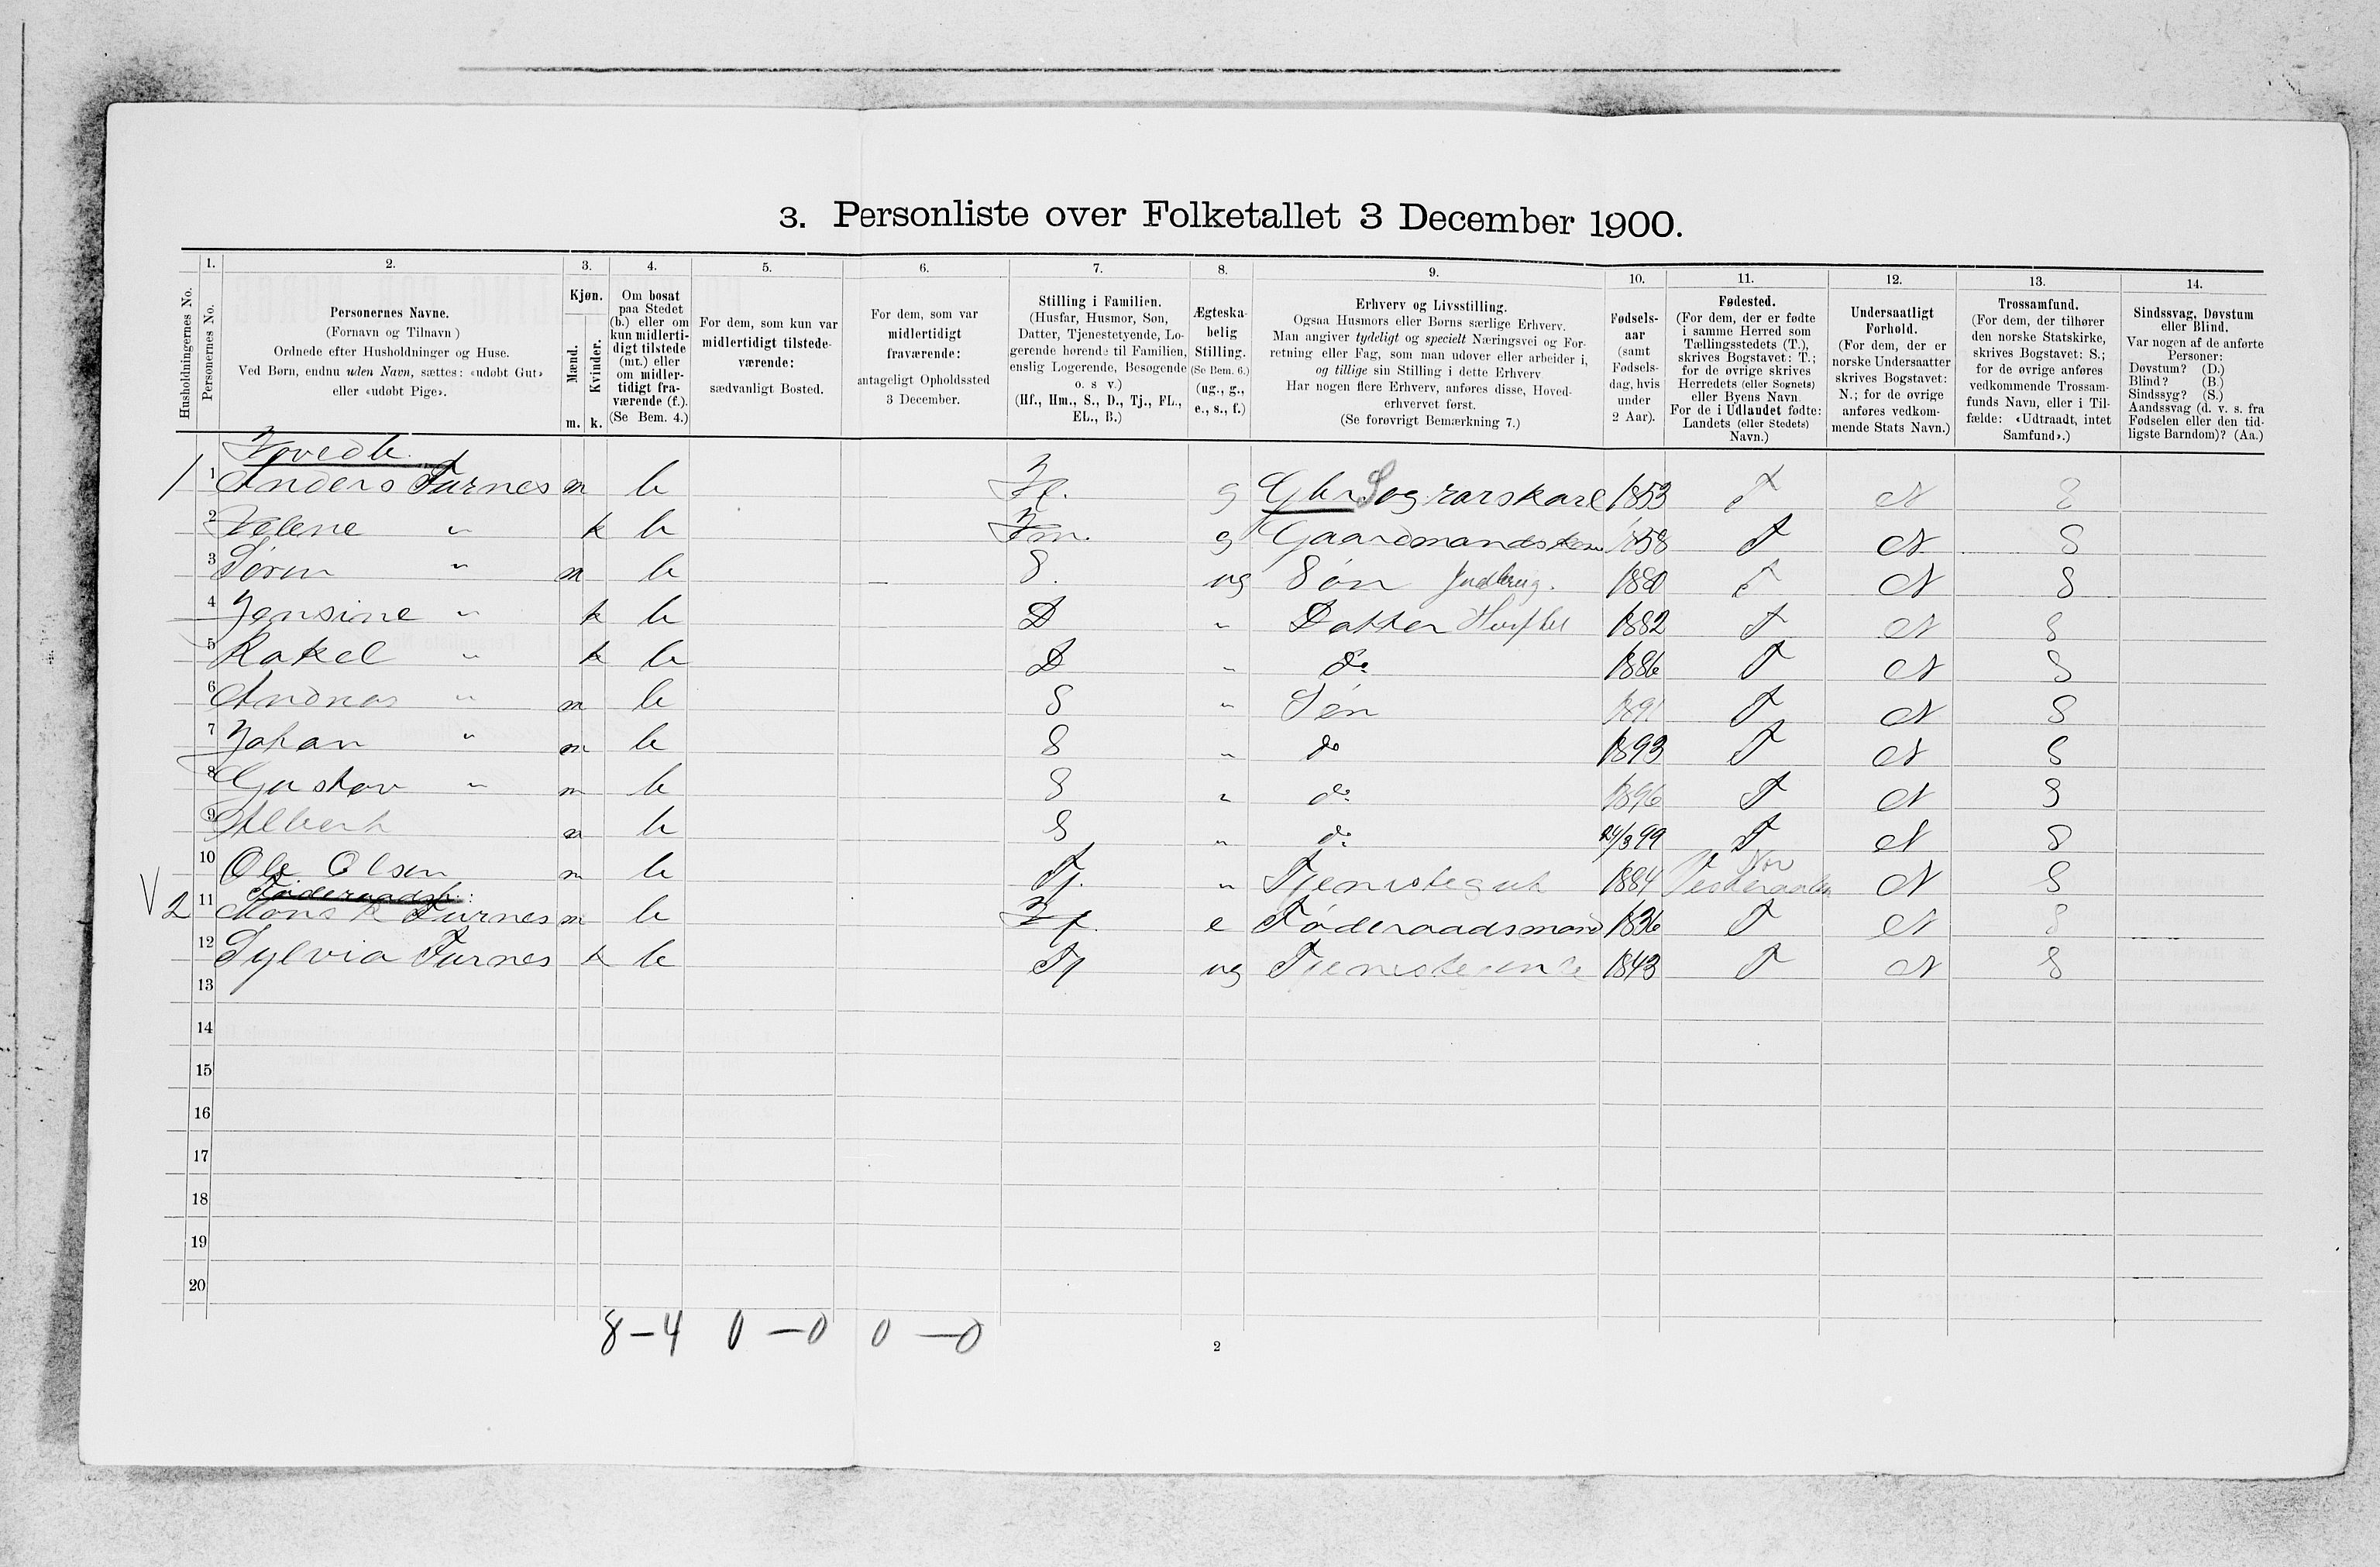 3. Personliste over Folketallet 3 December 1900.
1. 2. 3. 4. 5. 6. 7. 8. 9. 10. 11. 12. 13. 14.
Husholdningernes No.
Personernes No.
Personernes Navne.
(Fornavn og Tilnavn)
Ordnede efter Husholdninger og Huse.
Ved Børn, endnu uden Navn, sættes: «udøbt Gut»
eller «udøbt Pige».
Kjøn.
Mænd.
Kvinder.
m. k.
Om bosat
paa Stedet
(b.) eller om
kun midlerti-
digt tilstede
(mt.) eller
om midler-
tidigt fra-
værende (f.).
(Se Bem. 4.)
For dem, som kun var
midlertidigt tilstede-
værende:
sædvanligt Bosted.
For dem, som var
midlertidigt
fraværende:
antageligt Opholdssted
3 December.
Stilling i Familien.
(Husfar, Husmor, Søn,
Datter, Tjenestetyende, Lo-
gerende hørende til Familien,
enslig Logerende, Besøgende
o. s v.)
(Hf., Hm., S., D., Tj., FL.,
EL., B.)
Ægteska-
belig
Stilling.
(Se Bem. 6.)
(ug., g.,
e., s., f.)
Erhverv og Livsstilling.
Ogsaa Husmors eller Børns særlige Erhverv.
Man angiver tydeligt og specielt Næringsvei og For-
retning eller Fag, som man udøver eller arbeider i,
og tillige sin Stilling i dette Erhverv
Har nogen flere Erhverv, anføres disse, Hoved-
erhvervet først.
(Se forøvrigt Bemærkning 7.)
Fødsels-
aar
(samt
Fødsels-
dag, hvis
under
2 Aar).
Fødested.
(For dem, der er fødte
i samme Herred som
Tællingsstedets (T.),
skrives Bogstavet: T.;
for de øvrige skrives
Herredets (eller Sognets)
eller Byens Navn.
For de i Udlandet fødte:
Landets (eller Stedets)
Navn.)
Undersaatligt
Forhold.
(For dem, der er
norske Undersaatter
skrives Bogstavet:
N.; for de øvrige
anføres vedkom-
mende Stats Navn.)
Trossamfund.
(For dem, der tilhører
den norske Statskirke,
skrives Bogstavet: S.;
for de øvrige anføres
vedkommende Trossam-
funds Navn, eller i Til-
fælde: «Udtraadt, intet
Samfund».)
Sindssvag, Døvstum
eller Blind.
Var nogen af de anførte
Personer:
Døvstum? (D.)
Blind? (B.)
Sindssyg? (S.)
Aandssvag (d. v. s. fra
Fødselen eller den tid-
ligste Barndom)? (Aa.)
Hovedb.
1 1 Anders Furnes m b Hf. g 1853 T N S
2 Helene " k b Hm. g Gaardmandskone 1858 T N S
3 Søren " m b S. ug Søn Jordbrug. 1880 T N S
4 Jensine " k b D " Datter 1882 T N S
5 Rakel " k b D " do 1886 T N S
6 Andreas " m b S " Søn 1891 T N S
7 Johan " m b S " do 1893 T N S
8 Gustav " m b S " do 1896 T N S
9 Albert m b S " do 24/3 99 T N S
10 Ole Olsen m b Tj. " Tjenestegut 1884 N S
Føderaadsb:
2 11 Mons Furnes m b Hf. e Føderaadsmand 1836 T N S
12 Sylvia Furnes k b Tj ug 1843 T N S
13
14
15
16
17
18
19
20
8-4 0-0 0-0
2